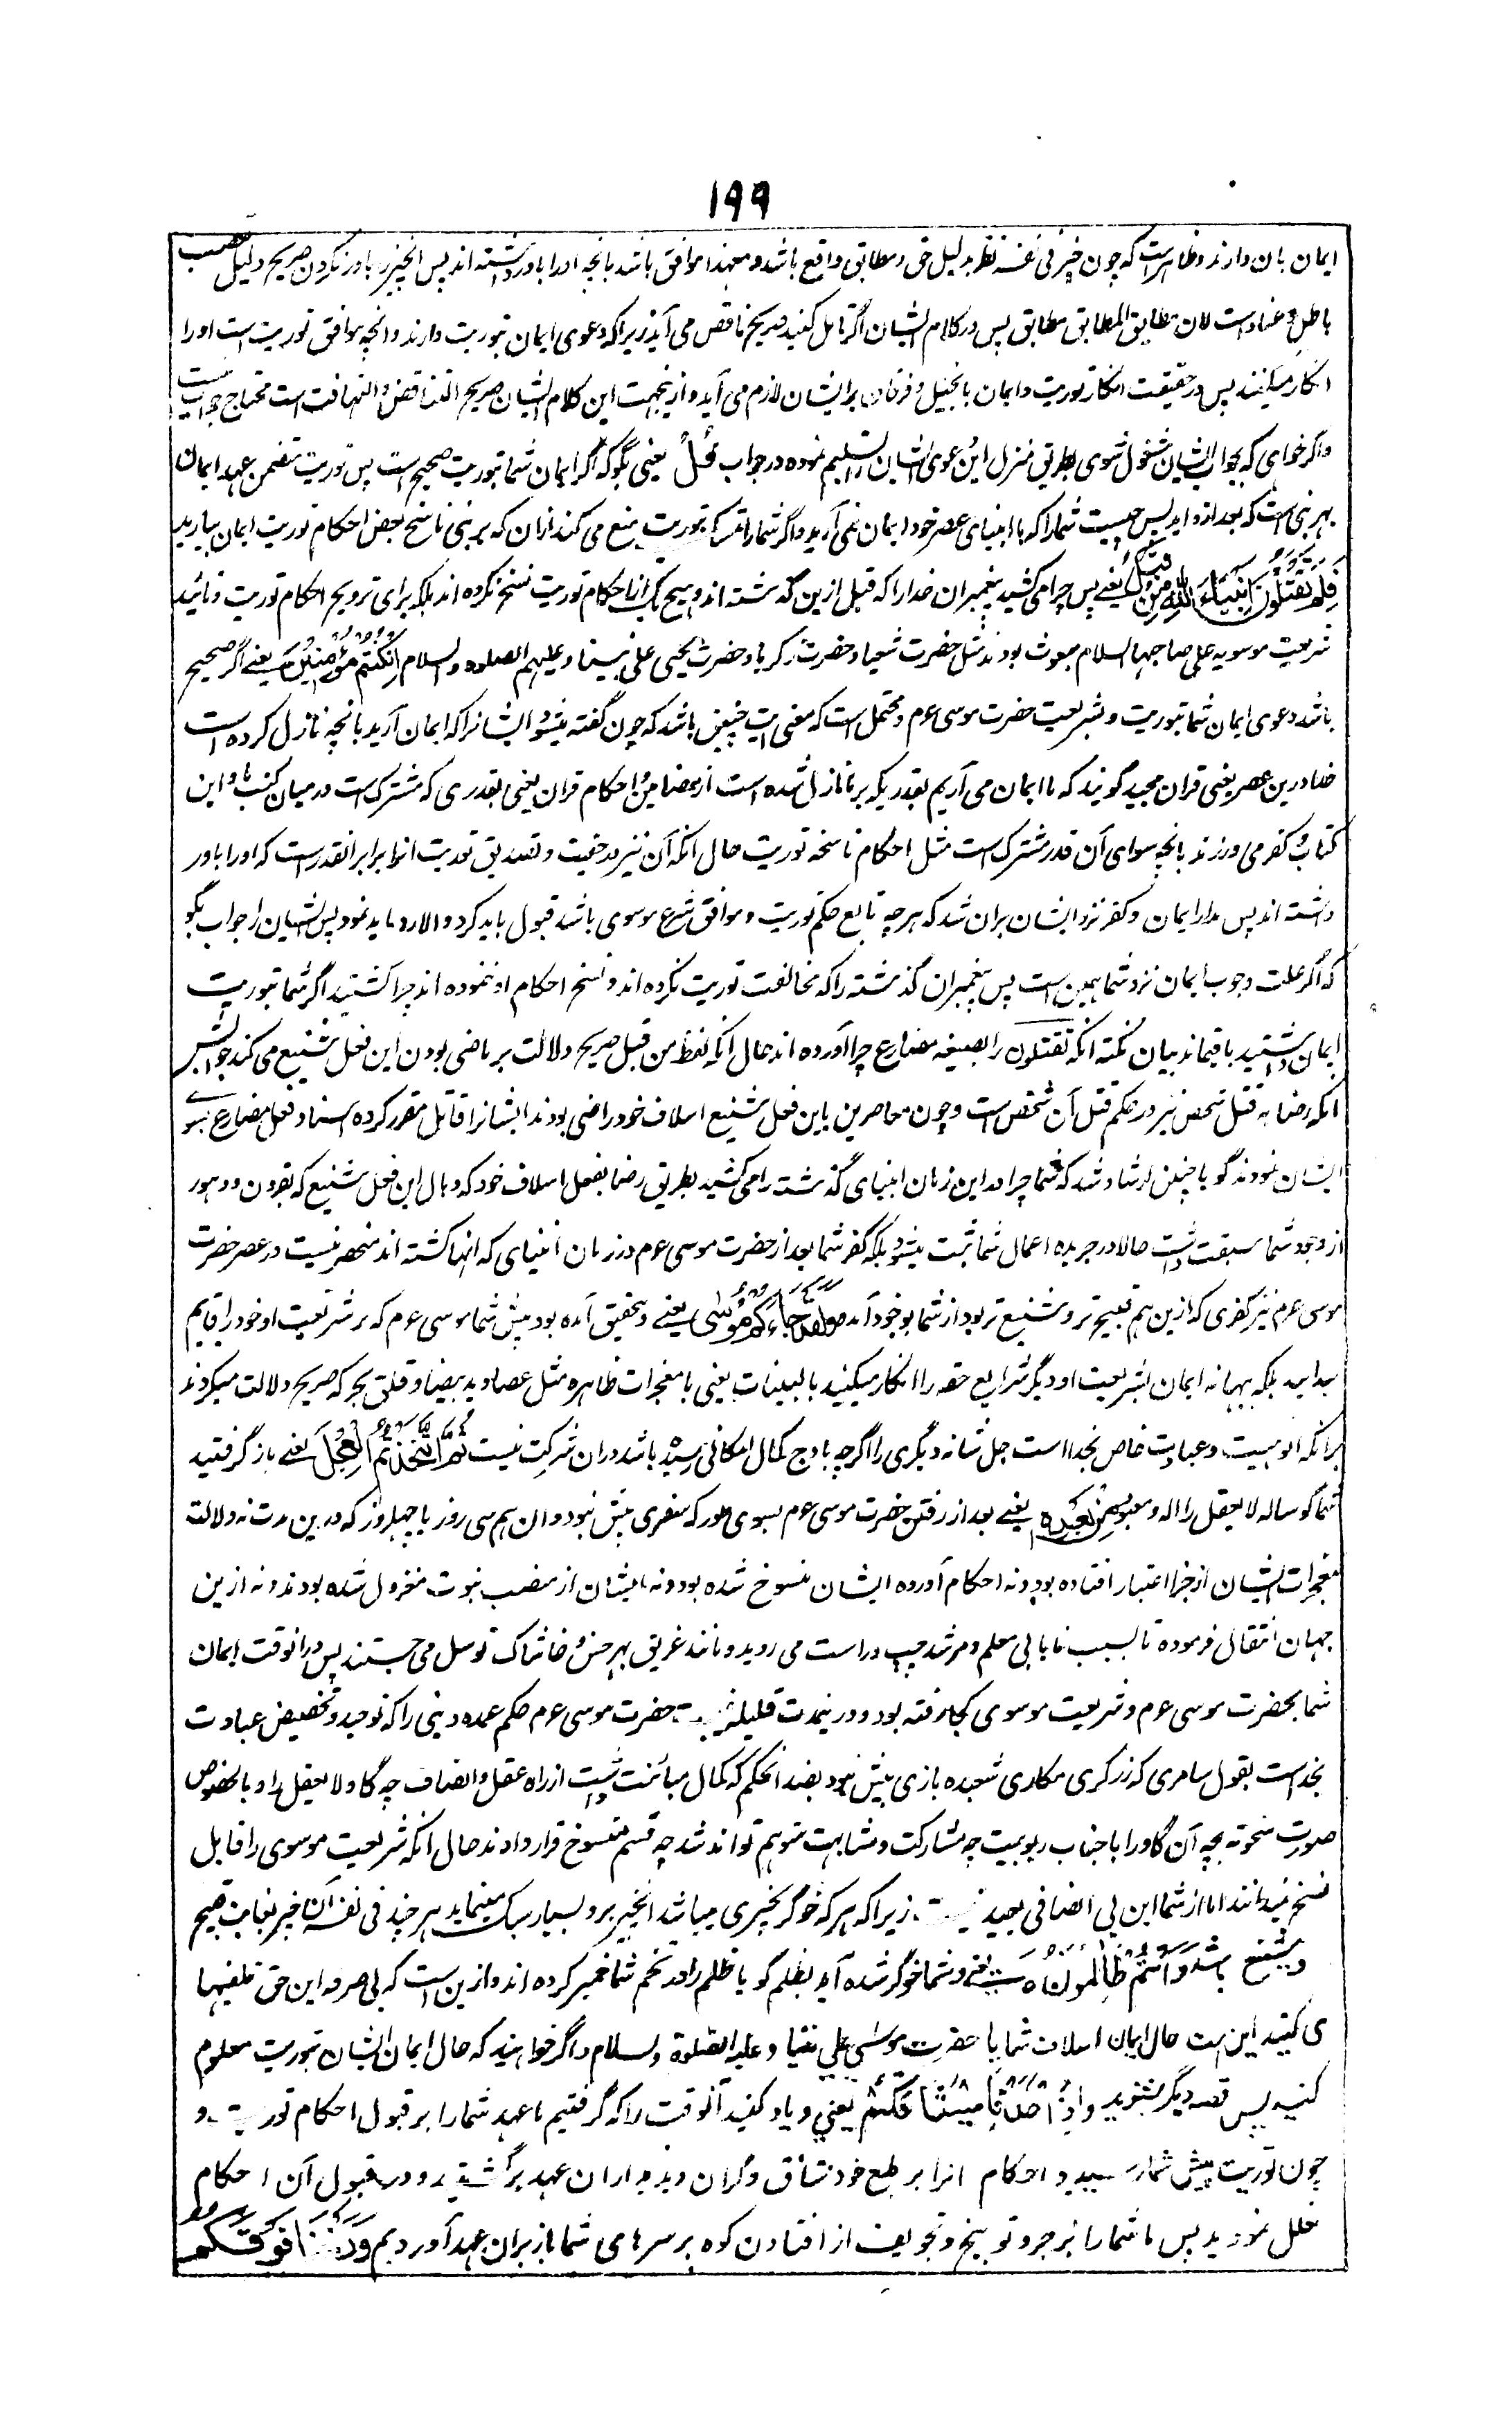 ١٩٩
ایمان بان دارند و ظاهر است که چون خبر فی نفسه نظر بدلیل حق و مطابق واقع باشد و معهذا موافق باشد بانچه او را باور داشته اند پس انخبر را باور نکردن صریح دلیل تعصب
باطل و عناد است لان مطابق المطابق مطابق پس در کلام ایشان اگر تامل کنید صریح تناقض می آید زیرا که دعوی ایمان بتوریت دارند و انچه موافق توریت است او را
انکار میکنند پس در حقیقت انکار توریت و ایمان بانجیل و فرقان بر ایشان لازم می آید و ازینجهت این کلام ایشان صریح التناقض و التهافت است محتاج جواب نیست
و اگر خواهی که بجواب ایشان مشغول شوی بطریق تنزل این دعوی ایشان را تسلیم نموده در جواب قُلْ یعنی بگو که اگر ایمان شما بتوریت صحیح است پس توریت متضمن عهد ایمان
بهر نبی است که بعد از و اید پس چیست شما را که با انبیای عصر خود ایمان نمی آرید و اگر شما را تمسک بتوریت منع می کند ازان که بر نبی ناسخ بعض احکام توریت ایمان بیارید
فَلِمَ تَقْتُلُونَ اَنْبِیَاءَ اللهِ مِنْ قَبْلُ یعنے پس چرا می کشید پیغمبران خدا را که قبل ازین گذشته اند و هیچ یک از احکام توریت نسخ نکرده اند بلکه برای ترویج احکام توریت و تائید
شریعت موسویه علی صاحبها السلام مبعوث بودند مثل حضرت شعیا و حضرت زکریا و حضرت یحیی علی نبینا و علیهم الصلوة و السلام اِنْ كُنْتُمْ مُؤْمِنِیْنَ یعنے اگر صحیح
باشد دعوی ایمان شما بتوریت و بشریعت حضرت موسی عم و محتمل است که معنی ایت چنین باشد که چون گفته میشود ایشانرا که ایمان آرید بانچه نازل کرده است
خدا درین عصر یعنی قران مجید گویند که ما ایمان می آریم بقدریکه بر ما نازل شده است از مضامین و احکام قران یعنی بقدری که مشترک است در میان کتب ما و این
کتاب و کفر می ورزند بانچه سوای آن قدر مشترک است مثل احکام ناسخه توریت حال آنکه آن نیز در حقیت و تصدیق توریت انرا برابر انقدر است که او را باور
داشته اند پس مدار ایمان و کفر نزد ایشان بران شد که هر چه تابع حکم توریت و موافق شرع موسوی باشد قبول باید کرد و الا رد باید نمود پس ایشان را جواب بگو
که اگر علت وجوب ایمان نزد شما همین است پس پیغمبران گذشته را که مخالفت توریت نکرده اند و نسخ احکام او ننموده اند چرا کشتید اگر شما بتوریت
ایمان داشتید باقیماند بیان نکته انکه تقتلون را بصیغه مضارع چرا آورده اند حال آنکه لفظ من قبل صریح دلالت بر ماضی بودن این فعل شنیع می کند جوابش
انکه رضا به قتل شخص نیز در حکم قتل آن شخص است و چون معاصرین باین فعل شنیع اسلاف خود راضی بودند ایشانرا قاتل مقرر کرده اسناد فعل مضارع بسوے
ایشان نمودند گویا چنین ارشاد شد که شما چرا درین زمان انبیای گذشته را می کشید بطریق رضا بفعل اسلاف خود که وبال این فعل شنیع که بقرون و دهور
از وجود شما سبقت داشت حالا در جریده اعمال شما ثبت میشود بلکه کفر شما بعد از حضرت موسی عم در زمان انبیای که انها کشته اند منحصر نیست در عصر حضرت
موسی عم نیز کفری که ازین هم قبیح تر و شنیع تر بود از شما بوجود آمد وَلَقَدْ جَاءَكُمْ مُوسٰی یعنے و بتحقیق آمده بود پیش شما موسی عم که بر شریعت او خود را قایم
میدارید بلکه بهانه ایمان بشریعت او دیگر شرایع حقه را انکار میکنید بالبینات یعنی با معجزات ظاهره مثل عصا و ید بیضا و فلق بحر که صریح دلالت میکردند
برانکه الوهیت و عبادت خاص بخدا است جل شانه دیگری را اگرچه باوج کمال امکانی رسیده باشد دران شرکت نیست ثُمَّ اتَّخَذْتُمُ الْعِجْلَ یعنے باز گرفتید
شما گوساله لا یعقل را اله و معبود مِنْ بَعْدِهِ یعنے بعد از رفتن حضرت موسی عم بسوی طور که سفری بیش نبود و ان هم سی روز یا چهلروز که درین مدت نه دلالت
معجزات ایشان از حیز اعتبار افتاده بود و نه احکام آورده ایشان منسوخ شده بود و نه ایشان از منصب نبوت معزول شده بودند و نه ازین
جهان انتقال فرموده تا بسبب نایابی معلم و مرشد چپ و راست می رویدو مانند غریق بهر خس و خاشاک توسل می جستند پس درانوقت ایمان
شما بحضرت موسی عم و شریعت موسوی کجا رفته بود و درینمدت قلیله حضرت موسی عم حکم عمده دینی را که توحید و تخصیص عبادت
بخداست بقول سامری که زرگری مکاری شعبده بازی بیش نبود بضد انحکم که کمال مبائنت داشت از راه عقل و انصاف چه گاو لا یعقل را و بالخصوص
صورت منحوته بچه آن گاو را با جناب ربوبیت چه مشارکت و مشابهت متوهم تواند شد چه قسم منسوخ قرار دادند حال انکه شریعت موسوی را قابل
نسخ نمیدانند اما از شما این بی انصافی بعید نیست زیرا که هر که خوگر بچیزی میباشد انچیز بر و بسیار سبک مینماید هر چند فی نفسه آن چیز بغایت قبیح
و شنیع باشد وَاَنْتُمْ ظَالِمُونَ یعنے و شما خوگر شده آید بظلم گویا ظلم را در تخم شما خمیر کرده اند و ازین است که بی صرفه این حق تلفیها
می کنید این ست حال ایمان اسلاف شما با حضرت موسٰی علی نبینا و علیه الصلوة و السلام و اگر خواهید که حال ایمان ایشان بتوریت معلوم
کنید پس قصه دیگر بشنوید وَاِذْ اَخَذْنَا مِیْثَاقَكُمْ یعنی و یاد کنید آنوقت را که گرفتیم ما عهد شما را بر قبول احکام توریت و
چون توریت پیش شما رسید و احکام انرا بر طبع خود شاق و گران دیدید ازان عهد برگشتید و در قبول آن احکام
خلل نمودید پس ما شما را بزجر و توبیخ و تخویف از افتادن کوه بر سرهای شما باز بران عهد آوردیم وَرَفَعْنَا فَوْقَكُمُ